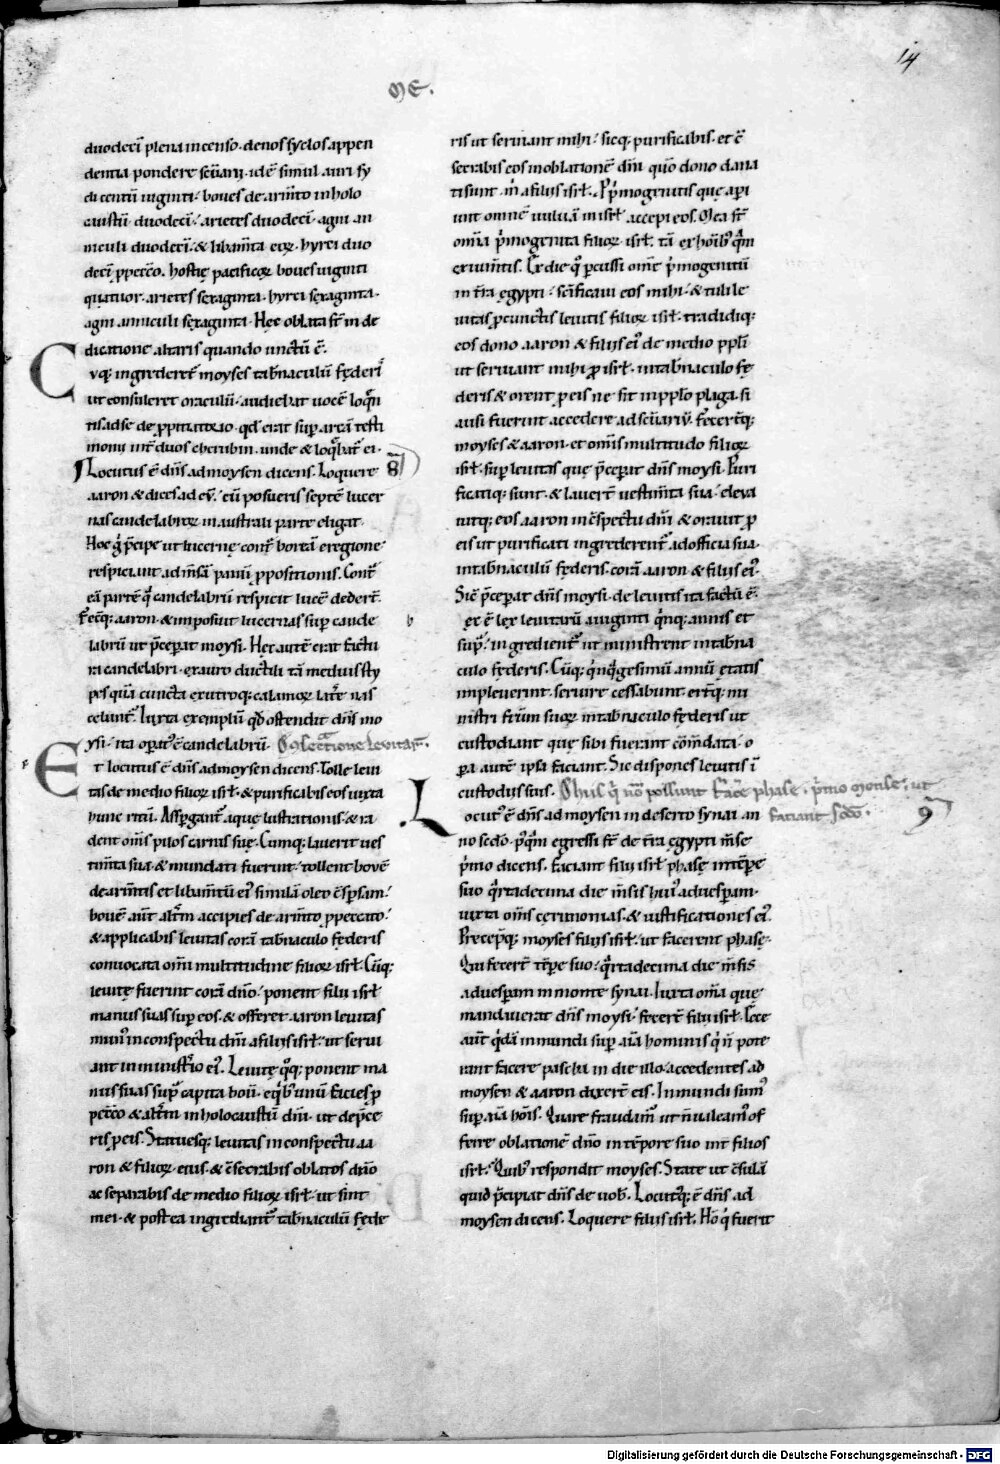 14
ME.
duodeci̅ plena incenso. denos syclos appen
dentia pondere sc̅uarii. id e̅ simul auri sy
cli centu̅ uiginti. boues de arm̅to in holo
caustu̅ duodeci̅. arietes duodeci̅. agni an
niculi duodeci̅. & libam̅ta eoꝝ. hyrci duo
deci̅ ꝓ peccc̅o. hostię pacificoꝝ boues uiginti
quatuor. arietes sexaginta. hyrci sexaginta.
agni anniculi sexaginta. Hec oblata st̅ in de
dicatione altaris quando unctu̅ e̅.
Cvq; ingrederet̅ moyses tab̅naculu̅ fęderi̅
ut consuleret oraculu̅. audiebat uoce̅ loq̅n
tis ad se de ꝓpitiatorio. qd̅ erat sup̅ arca̅ testi
monii int̅ duos cherubin. unde & loq̅bat̅ ei.
Locutus e̅ dn̅s ad moysen dicens. Loquere 8
aaron & dices ad eu̅. cu̅ posueris septe̅ lucer
nas candelabroꝝ in australi parte erigat̅.
Hoc g̅ p̅cipe ut lucernę cont̅ borea̅ e regione
respiciant ad m̅sa̅ panu̅ ꝓpositionis. Cont̅
ea̅ parte̅ q̅ candelabru̅ respicit luce̅ debere̅t.
Fecitq; aaron. & imposuit lucernas sup̅ cande
labru̅ ut p̅ceperat moysi. Hec aute̅ erat factu
ra candelabri. ex auro ductili ta̅ medius sty
pes qua̅ cuncta ex utroq; calamoꝝ lat̅e nas
cebant̅. Iuxta exemplu̅ qd̅ ostendit dn̅s mo
ysi. ita opat᷒ e̅ candelabru̅. De electione leuitaꝝ.
Et locutus e̅ dn̅s ad moysen dicens. Tolle leui
tas de medio filioꝝ isrł. & purificabis eos iuxta
hunc ritu̅. Asp̅gant̅ aque lustrationis. & ra
dent om̅s pilos carnis suę. Cumq; lauerit ues
tim̅ta sua. & mundati fuerint. tollent boue̅
de arm̅tis et libam̅tu̅ ei᷒ simila̅ oleo c̅sp̅sam.
boue̅ aut̅ alt̅m accipies de arm̅to ꝓ peccato.
& applicabis leuitas cora̅ tab̅naculo fęderis
conuocata om̅i multitudine filioꝝ isrł. Cu̅q;
leuitę fuerint cora̅ dn̅o. ponent filii isrł
manus suas sup̅ eos. & offeret aaron leuitas
mun᷒ in conspectu dn̅i a filiis isrł. ut serui
ant in minist̅io ei᷒. Leuitę q̊q; ponent ma
nus suas sup̅ capita bou̅. e quib᷒ unu̅ facies ꝓ
pecc̅o & alt̅m in holocaustu̅ dn̅i. ut dep̅ce
ris ꝓ eis. Statuesq; leuitas in conspectu aa
ron & filioꝝ eius. & c̅secrabis oblatos dn̅o
ac separabis de medio filioꝝ isrł. ut sint
mei. & postea ingrediant̅ tab̅naculu̅ fęde
ris ut seruiant mihi. sicq; purificabis. et c̅
secrabis eos in oblatione̅ dn̅i. quo̅ dono dona
ti sunt m̅ a filiis isrł. P̅mogenitis que aperi
unt omne̅ uulua̅ in isrł. accepi eos. Mea st̅
om̅ia p̅mogenita filioꝝ isrł. ta̅ ex ho̅ib᷒ q̅m
ex ium̅tis. Ex die q̊ p̅cussi om̅e p̅mogenitu̅
in t̅ra egypti. sc̅ificaui eos mihi. & tuli le
uitas ꝓ cunctis leuitis filioꝝ isrł. tradidiq;
eos dono aaron & filiis ei᷒ de medio ppl̅i
ut seruiant mihi ꝓ isrł. in tab̅naculo fę
deris & orent ꝓ eis ne sit in pplo̅ plaga. si
ausi fuerint accedere ad sc̅uariu̅. Fecert̅q;
moyses & aaron. et omnis multitudo filioꝝ
isrł. sup̅ leuitas que p̅ceperat dn̅s moysi. Puri
ficatiq; sunt. & lauert̅ uestim̅ta sua. eleua
uitq; eos aaron in c̅spectu dn̅i & orauit ꝓ
eis ut purificati ingrederent̅ ad officia sua.
in tab̅naculu̅ fęderis. cora̅ aaron & filiis ei᷒.
Sic̅ p̅ceperat dn̅s moysi. de leuitis ita factu̅ e̅.
ec e̅ lex leuitaru̅. a uiginti q̅nq; annis et
sup̅. ingredient̅ ut ministrent in tab̅na
culo fęderis. Cu̅q; q̅nq̅gesimu̅ annu̅ ętatis
impleuerint. seruire cessabunt. erutq; mi
nistri fr̅um suoꝝ in tab̅naculo fęderis ut
custodiant que sibi fuerant co̅m̅data. o
p̅a aute̅ ipsa faciant. Sic dispones leuitis i̅
custodiis suis. De his q̅ no̅ possunt face̅ phase. p̅mo mense. ut
Locut᷒ e̅ dn̅s ad moysen in deserto synai. an faciant sc̅do. 9
no sc̅do. p᷒q̅m egressi st̅ de t̅ra egypti m̅se
p̅mo dicens. Faciant filii isrł phase in te̅pe
suo q̅rtadecima die m̅sis hui᷒ ad uesp̅am.
iuxta om̅s cerimonias. & iustificationes ei᷒.
Precep̅q; moyses filiis isrł. ut facerent phase.
Qui fecert̅ te̅pe suo. q̅rtadecima die m̅sis
ad uesp̅am in monte synai. Iuxta om̅ia que
mandauerat dn̅s moysi. fecert̅ filii isrł. Ecce
aut̅ q̅da̅ inmundi sup̅ aı̅a hominis q̅ n̅ pote
rant facere pascha in die illo. accedentes ad
moysen & aaron dixert̅ eis. Inmundi sum᷒
sup̅ aı̅a ho̅is. Quare fraudam᷒ ut n̅ ualeam᷒ of
ferre oblatione̅ dn̅o in te̅pore suo int̅ filios
isrł. Quib᷒ respondit moyses. State ut c̅sula̅
quid p̅cipiat dn̅s de uob̅. Locut᷒q; e̅ dn̅s ad
moysen dicens. Loquere filiis isrł. Ho̅ q̅ fuerit
Digitalisierung gefördert durch die Deutsche Forschungsgemeinschaft - DFG